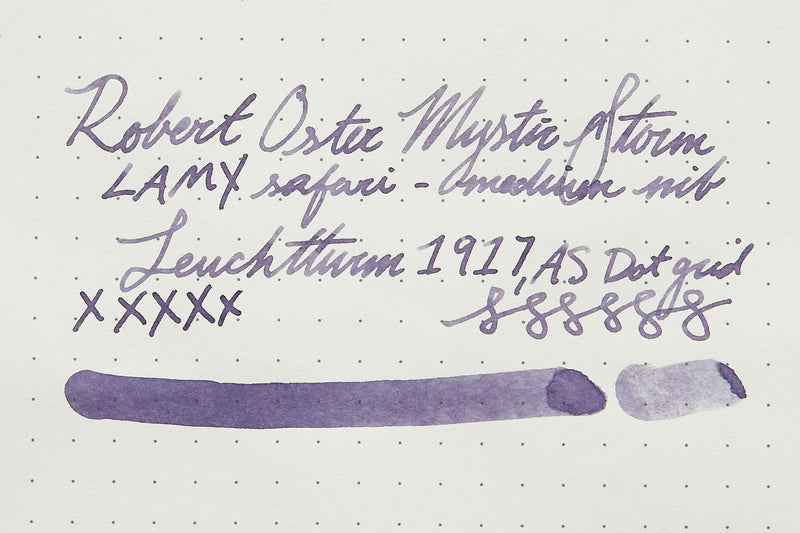 Robert Oster Mystic Storm
LAMY safari - medium nib
Leuchtturm 1917, A5 Dot grid
X X X X X